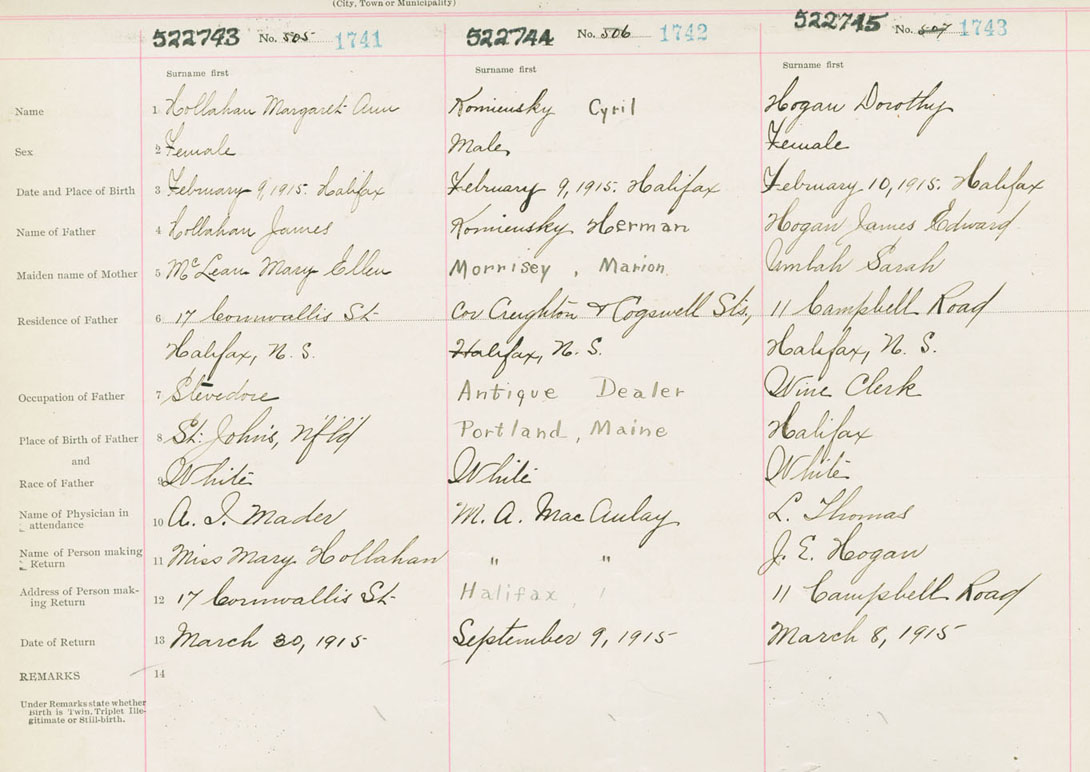 (City, Town or Municipality)
522743 No. 505 1741 522744 No. 506 1742 522745 No. 507 1743
Surname first Surname first Surname first
Name 1 Hollahan Margaret Ann Komiensky Cyril Hogan Dorothy
Sex 2 Female Male Female
Date and Place of Birth 3 February 9, 1915. Halifax February 9, 1915. Halifax February 10, 1915. Halifax
Name of Father 4 Hollahan James Komiensky Herman Hogan James Edward
Maiden name of Mother 5 McLean Mary Ellen Morrisey, Marion Umlah Sarah
Residence of Father 6 17 Cornwallis St Cor Creighton & Cogswell Sts., 11 Campbell Road
Halifax, N. S. Halifax, N. S. Halifax, N. S.
Occupation of Father 7 Stevedore Antique Dealer Wine Clerk
Place of Birth of Father 8 St. John's, Nf'l'd Portland, Maine Halifax
and
Race of Father 9 White White White
Name of Physician in attendance 10 A. I. Mader M. A. MacAulay L. Thomas
Name of Person making Return 11 Miss Mary Hollahan " " J. E. Hogan
Address of Person mak-
ing Return 12 17 Cornwallis St Halifax 11 Campbell Road
Date of Return 13 March 30, 1915 September 9, 1915 March 8, 1915
REMARKS 14
Under Remarks state whether
Birth is Twin, Triplet Ille-
gitimate or Still-birth.